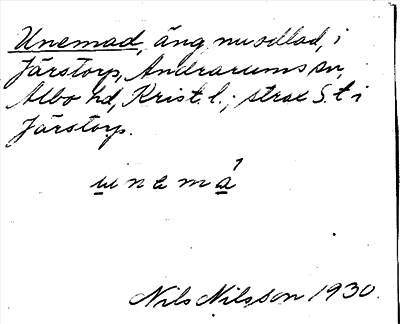 Unemad, äng, nu odlad, i
Järstorp, Andrarums sn,
Albo hd, Krist. l.; strax S. t i
Järstorp.
u n e m a
Nils Nilsson 1930.